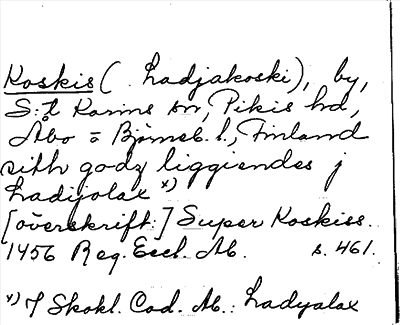 Koskis ( . Ladjakoski), by,
S:t Karins sn, Pikis hd,
Åbo o Björneb. l., Finland
sith godz liggiendes j
Ladijolax x)
[överskrift:] Super Koskiss.
1456 Reg. Eccl. Ab. s. 461.
x) I Skokl. Cod. Ab.: Ladyalax